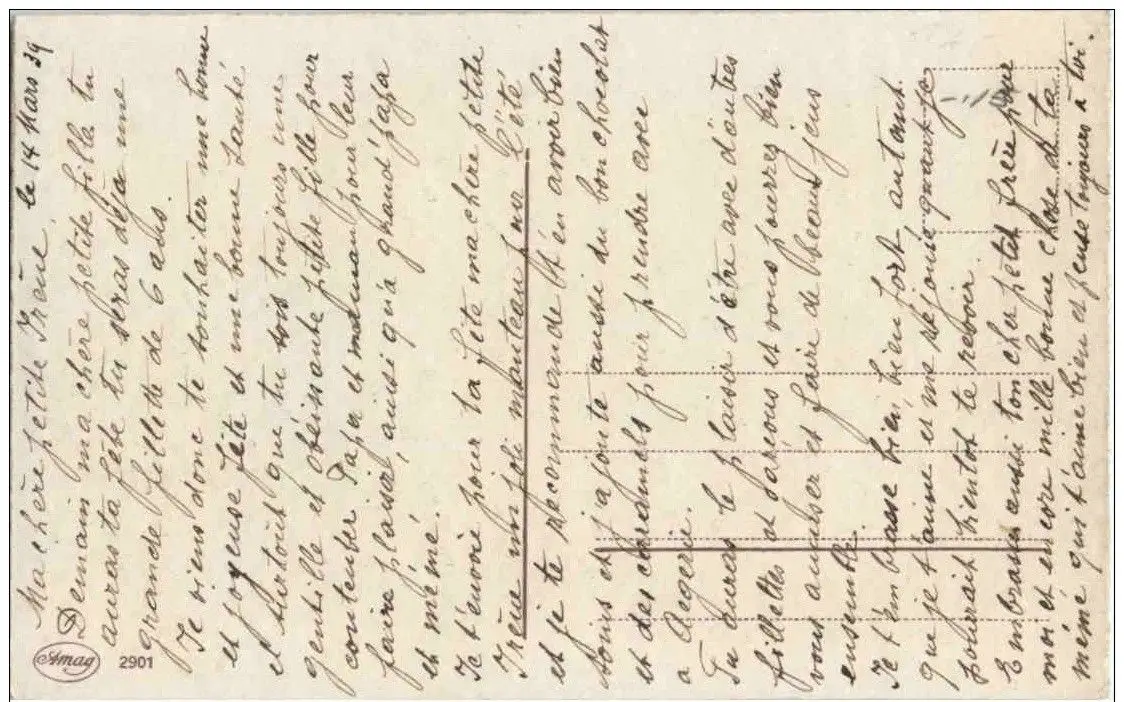 Ma chère petite Irène, le 14 Mars 39
Demain ma chère petite fille tu
auras ta fête tu seras déja une
grande fillette de 6 ans.
Je viens donc te souhaiter une bonne
et joyeuse fête et une bonne santé
et surtout que tu sois toujours une
gentille et obéissante petite fille pour
contenter Papa et maman pour leur
faire plaisir, ainsi qu'a grand'papa
et mémé.
Je t'envoie pour ta fête ma chère petite
Irène un joli manteau pour l'été
et je te recommande d'en avoir bien
soins et j'ajoute aussi du bon chocolat
et des caramels pour prendre avec
a Aegerie.
Tu auras le plaisir d'être avec d'autres
fillettes et garçons et vous pourrez bien
vous amuser et faire de beaux jeux
ensemble
Je t'embrasse bien, bien fort, autant
que je t'aime et me réjouie quand je
pourrait bientot te revoir.
Embrasse aussi ton cher petit frère pour
moi et encore mille bonne chose de ta
mémé qui t'aime bien et pense toujours à toi.
Amag
2901